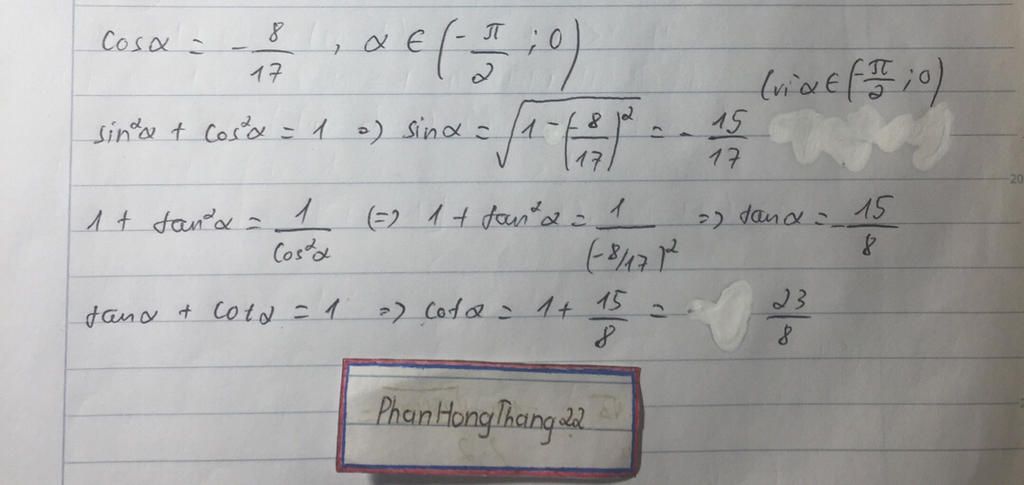 cosα = - 8/17 , α ∈ (- π/2 ; 0)
(vì α ∈ (-π/2 ; 0)
sin²α + cos²α = 1 => sinα = √(1 - (-8/17)²) = - 15/17
1 + tan²α = 1/cos²α (=) 1 + tan²α = 1/(-8/17)² => tanα = - 15/8
tanα + cotα = 1 => cotα = 1 + 15/8 = - 23/8
PhanHongThang22